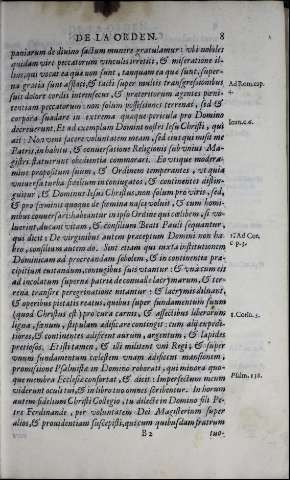 DE LA ORDEN. 8
paniarum de diuino factum munere gratulamur: vbi nobiles
quidam viri peccatorum vinculis irretiti, & miseratione il-
lius, qui vocat ea quæ non sunt, tanquam ea quæ sunt, super-
na gratia sunt afflati, & tacti super multis transgressionibus
suis dolore cordis intrinsecus, & præteritorum agentes pœni-
tentiam peccatorum: non solum possessiones terrenas, sed &
corpora sua dare in extrema quæque pericula pro Domino
decreuerunt. Et ad exemplum Domini nostri Iesu Christi, qui
ait: Non veni facere voluntatem meam, sed eius qui misit me
Patris, in habitu, & conuersatione Religionis sub vnius Ma-
gistri statuerunt obedientia commorari. Eo vtique modera-
mine propositum suum, & Ordinem temperantes, vt quia
vniuersa turba fidelium in coniugatos, & continentes distin-
guitur, Et Dominus Iesus Christus, non solum pro viris, sed,
& pro feminis quoque de femina nasci voluit, & cum homi-
nibus conuersari: habeantur in ipso Ordine qui cælibem, si vo-
luerint, ducant vitam, & consilium Beati Pauli sequantur,
qui dicit: De virginibus autem præceptum Domini non ha-
beo, consilium autem do. Sint etiam qui iuxta institutionem
Dominicam ad procreandam sobolem, & in continentiæ præ-
cipitium euitandum, coniugibus suis vtantur: & vna cum eis
ad incolatum supernæ patriæ de conualle lacrymarum, & ter-
rena transire peregrinatione nitantur: & lacrymis diluant,
& operibus pietatis reatus, quibus super fundamentum suum
(quod Christus est) pro cura carnis, & affectibus liberorum
ligna, fœnum, stipulam ædificare contingit: cum alij expedi-
tiores, & continentes ædificent aurum, argentum, & lapides
pretiosos. Et isti tamen, & illi militent vni Regi, & super
vnum fundamentum cælestem vnam ædificent mansionem,
promissione Psalmistæ in Domino roborati, qui minora quo-
que membra Ecclesiæ confortat, & dicit: Imperfectum meum
viderunt oculi tui, & in libro tuo omnes scribentur. In horum
autem fidelium Christi Collegio, tu dilecte in Domino fili Pe-
tre Ferdinande, per voluntatem Dei Magisterium super
alios, & prouidentiam suscepisti, qui cum quibusdam fratrum
B 2 tuo-
Ad Rom. cap.
4.
Ioan. c. 6.
1. Ad Cor.
c. p. 7.
1. Corin. 3.
Psalm. 138.